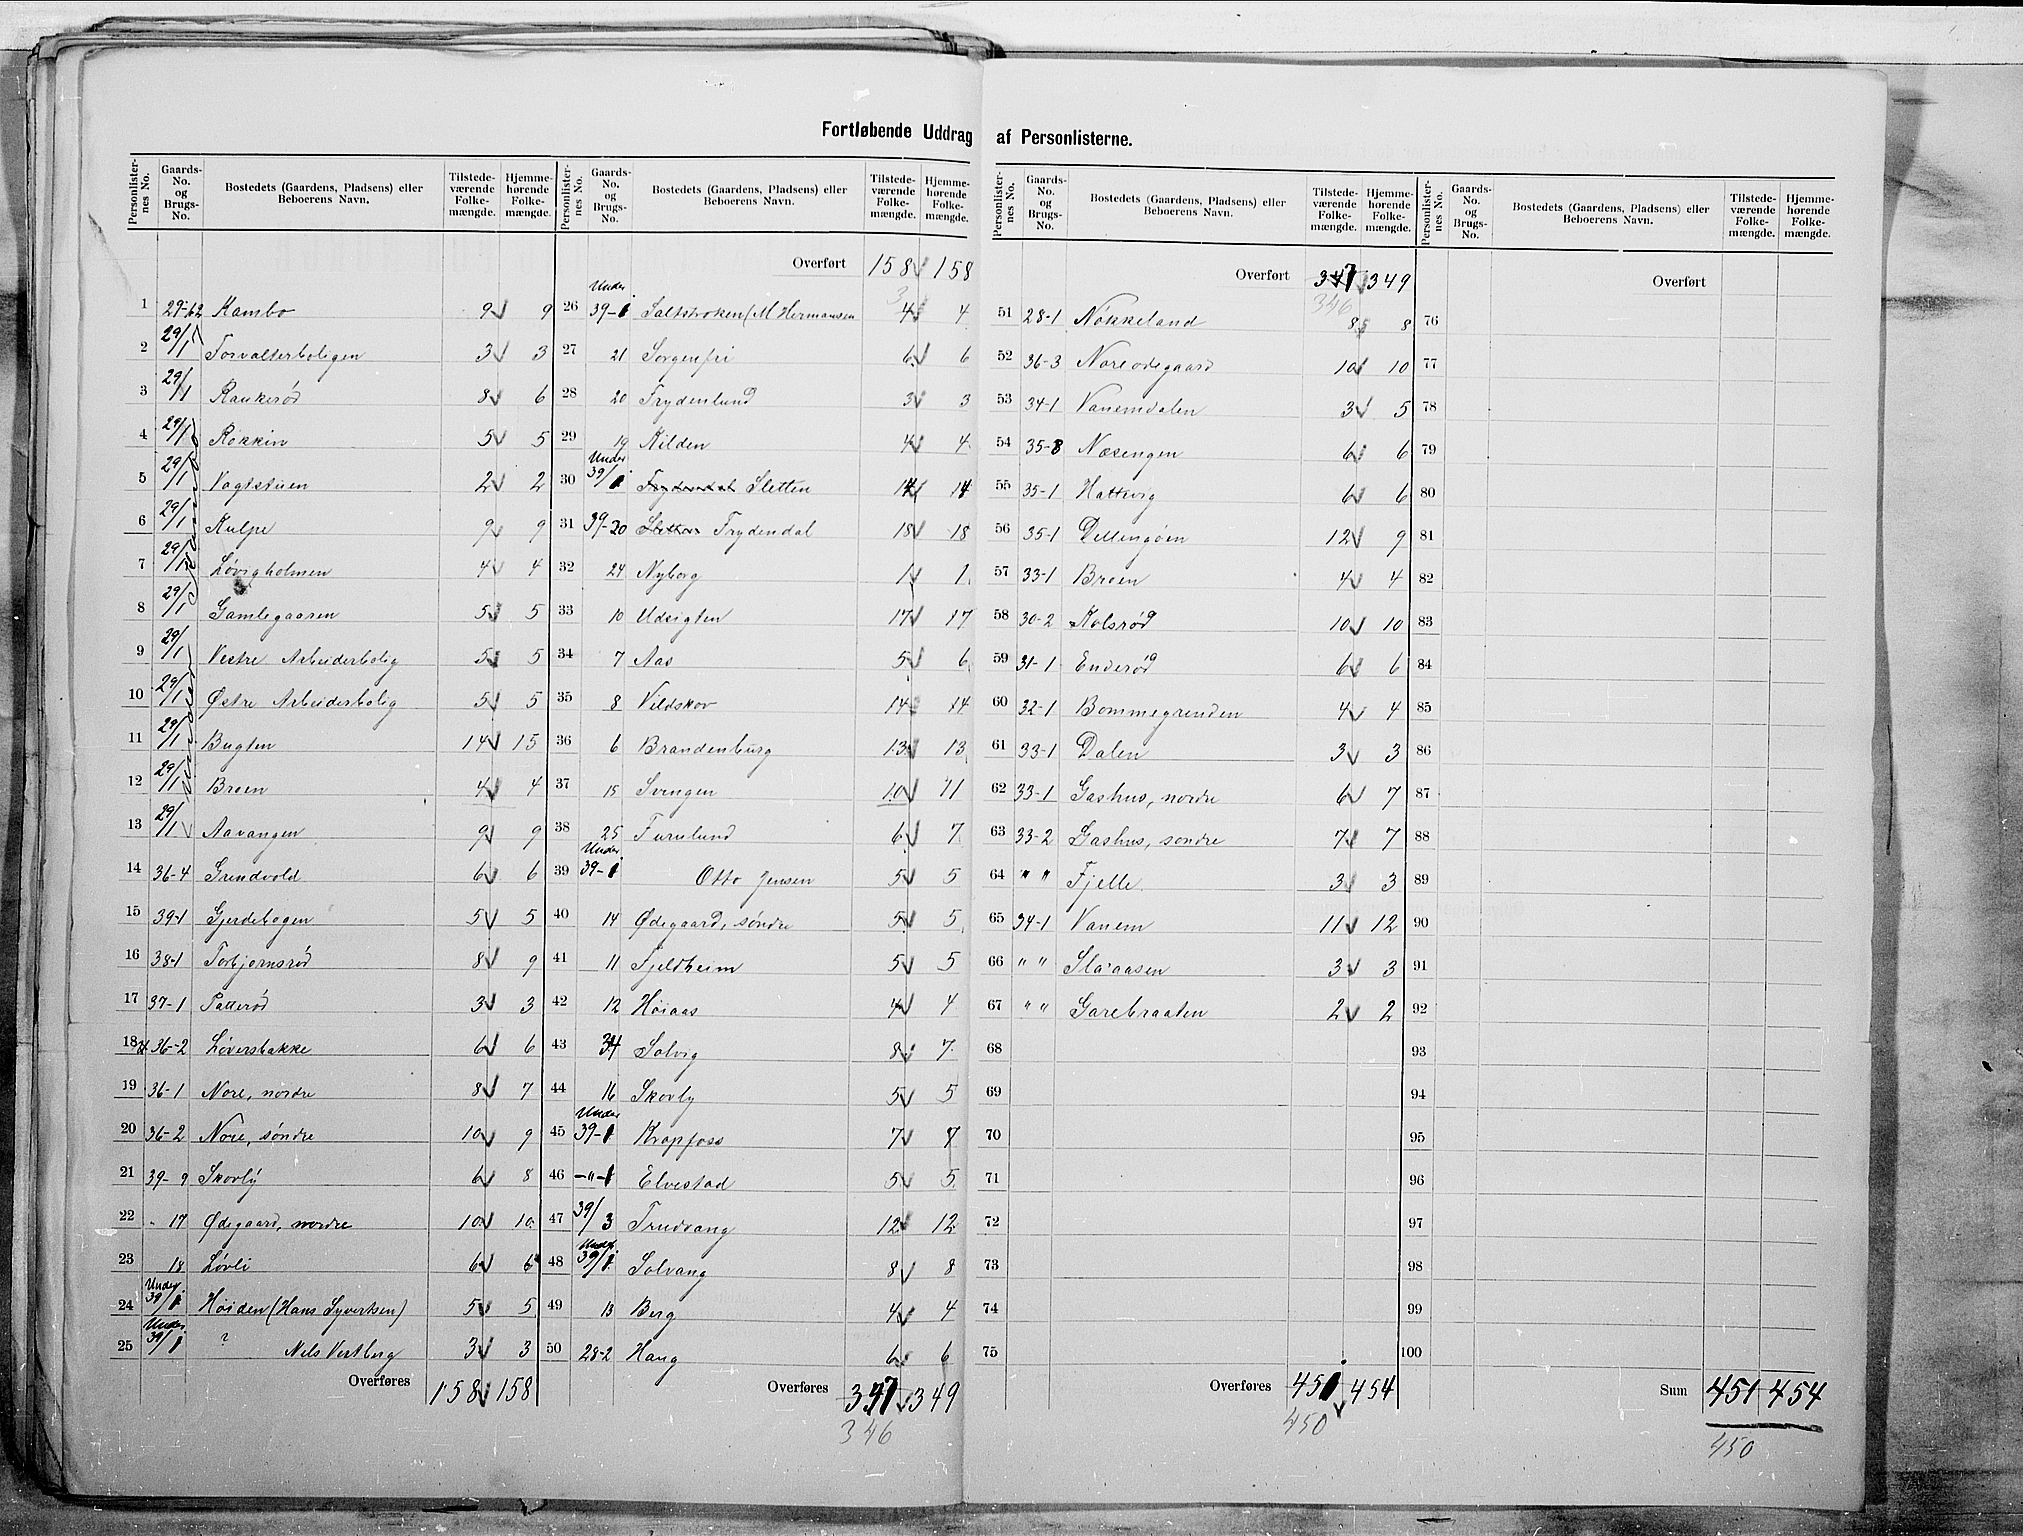 Fortløbende Uddrag af Personlisterne.
Personlister-nes No. Gaards-No. og Brugs-No. Bostedets (Gaardens, Pladsens) eller Beboerens Navn. Tilstede-værende Folke-mængde. Hjemme-hørende Folke-mængde.
1 29-62 Kambo 9 9
2 29/1 Forvalterboligen 3 3
3 29/1 Raukerød 8 6
4 29/1 Rokkin 5 5
5 29/1 Vogtstuen 2 2
6 29/1 Kulpe 9 9
7 29/1 Løvigholmen 4 4
8 29/1 Gamlegaasen 5 5
9 29/1 Vestre Arbeiderbolig 5 5
10 29/1 Østre Arbeiderbolig 5 5
11 29/1 Bugten 14 15
12 29/1 Breen 4 4
13 29/1 Aavangen 9 9
14 36-4 Grendvold 6 6
15 39-1 Gjerdebogen 5 5
16 38-1 Torbjørnsrød 8 9
17 37-1 Patterød 3 3
18 36-2 Løversbakke 6 6
19 36-1 Nore, nordre 8 7
20 36-2 Nore, søndre 10 9
21 39-9 Skovly 6 8
22 - 17 Ødegaard, nordre 10 10
23 18 Løvli 6 6
24 Under 39/1 Høiden (Hans Syvertsen) 5 5
25 Under 39/1 ? Nils Vestberg 3 3
Overføres 158 158
Personlister-nes No. Gaards-No. og Brugs-No. Bostedets (Gaardens, Pladsens) eller Beboerens Navn. Tilstede-værende Folke-mængde. Hjemme-hørende Folke-mængde.
Overført 158 158
3
26 Under 39-1 Saltstroken (M Hermansen 4 4
27 21 Sorgenfri 6 6
28 20 Frydenlund 3 3
29 19 Kilden 4 4
30 Under 39/1 Frydendal Sletten 14 14
31 39-20 Sletten Frydendal 18 18
32 24 Nyborg 1 1
33 10 Udsigten 17 17
34 7 Aas 5 6
35 8 Vildskov 14 14
36 6 Brandenburg 13 13
37 15 Svingen 10 11
38 25 Furulund 6 7
39 Under 39-1 Otto Jensen 5 5
40 14 Ødegaard, søndre 5 5
41 11 Fjeldheim 5 5
42 12 Høiaas 4 4
43 34 Solvig 8 7
44 16 Skovly 5 5
45 Under 39-1 Krapfoss 7 7
46 -"-1 Elvestad 5 5
47 39/3 Trudvang 12 12
48 Under 39/1 Solvang 8 8
49 13 Berg 4 4
50 28-2 Haug 6 6
Overføres 347 349
346
Personlister-nes No. Gaards-No. og Brugs-No. Bostedets (Gaardens, Pladsens) eller Beboerens Navn. Tilstede-værende Folke-mængde. Hjemme-hørende Folke-mængde.
Overført 347 349
346
51 28-1 Nøkkeland 8 8
52 36-3 Noreødegaard 10 10
53 34-1 Vanemdalen 3 5
54 35-8 Næsengen 6 6
55 35-1 Hattevig 6 6
56 35-1 Dillingøen 12 9
57 33-1 Breen 4 4
58 30-2 Kolsrød 10 10
59 31-1 Enderød 6 6
60 32-1 Bommegrenden 4 4
61 33-1 Dalen 3 3
62 33-1 Gashus, nordre 6 7
63 33-2 Gashus, søndre 7 7
64 " " Fjelle 3 3
65 34-1 Vanem 11 12
66 " " Slaaasen 3 3
67 " " Garebraaten 2 2
68
69
70
71
72
73
74
75
Overføres 451 454
450
Personlister-nes No. Gaards-No. og Brugs-No. Bostedets (Gaardens, Pladsens) eller Beboerens Navn. Tilstede-værende Folke-mængde. Hjemme-hørende Folke-mængde.
Overført
76
77
78
79
80
81
82
83
84
85
86
87
88
89
90
91
92
93
94
95
96
97
98
99
100
Sum 451 454
450